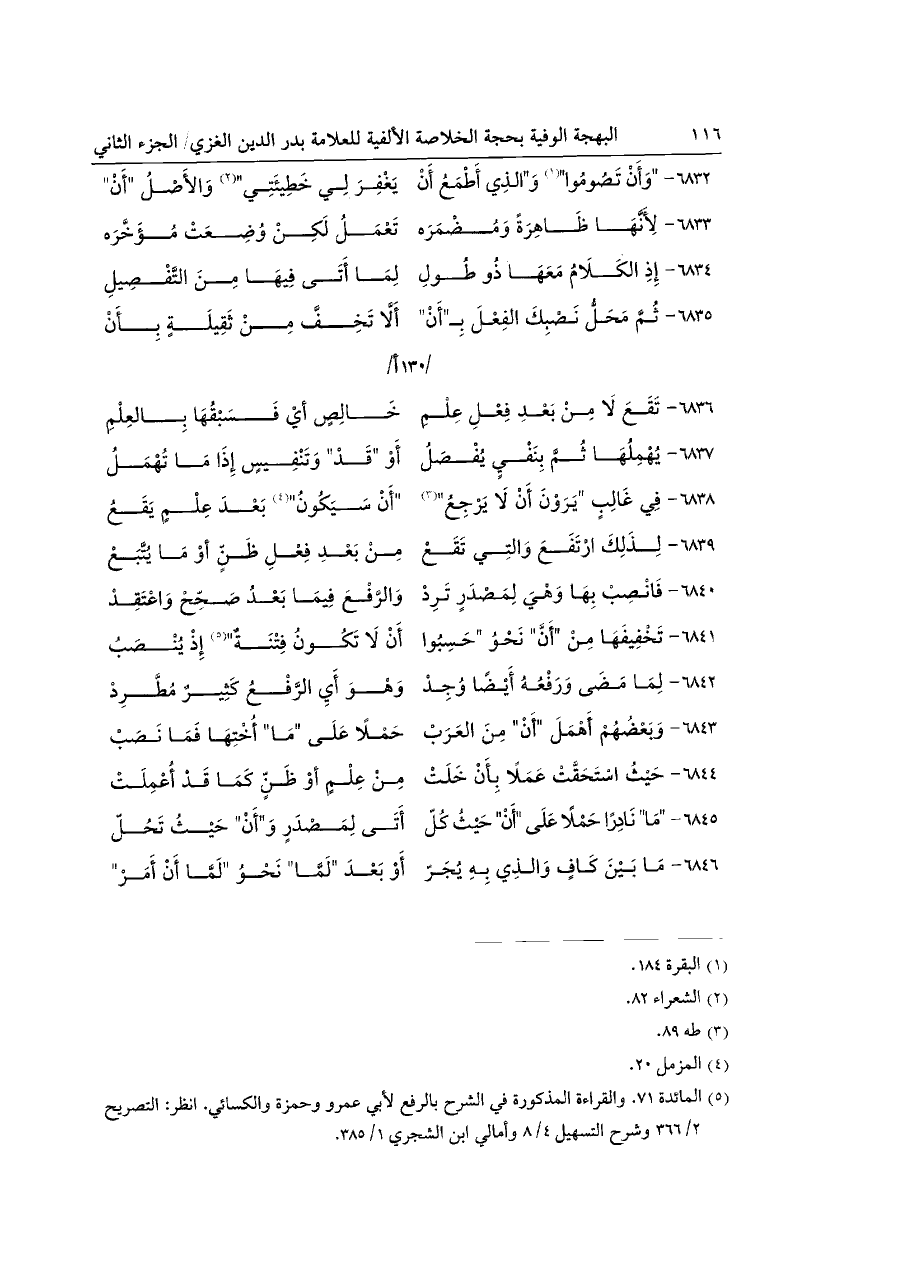 ١١٦ البهجة الوفية بحجة الخلاصة الألفية للعلامة بدر الدين الغزي/ الجزء الثاني
٦٨٣٢- "وَأَنْ تَصُومُوا"(١) وَ"الذِي أَطْمَعُ أَنْ يَغْفِرَ لِي خَطِيئَتِي"(٢) وَالأَصْلُ "أَنْ"
٦٨٣٣- لِأَنَّهَا ظَاهِرَةً وَمُضْمَرَه تَعْمَلُ لَكِنْ وُضِعَتْ مُؤَخَّرَه
٦٨٣٤- إِذِ الكَلَامُ مَعَهَا ذُو طُولِ لِمَا أَتَى فِيهَا مِنَ التَّفْصِيلِ
٦٨٣٥- ثُمَّ مَحَلُّ نَصْبِكَ الفِعْلَ بِـ"أَنْ" أَلَّا تَخِفَّ مِنْ ثَقِيلَةٍ بِأَنْ
/١٣٠أ/
٦٨٣٦- تَقَعَ لَا مِنْ بَعْدِ فِعْلِ عِلْمِ خَالِصٍ أيْ فَسَبْقُهَا بِالعِلْمِ
٦٨٣٧- يُهْمِلُهَا ثُمَّ بِنَفْيٍ يُفْصَلُ أَوْ "قَدْ" وَتَنْفِيسٍ إِذَا مَا تُهْمَلُ
٦٨٣٨- فِي غَالِبٍ "يَرَوْنَ أَنْ لَا يَرْجِعُ"(٣) "أَنْ سَيَكُونُ"(٤) بَعْدَ عِلْمٍ يَقَعُ
٦٨٣٩- لِذَلِكَ ارْتَفَعَ وَالتِي تَقَعْ مِنْ بَعْدِ فِعْلِ ظَنٍّ أوْ مَا يُتَّبَعْ
٦٨٤٠- فَانْصِبْ بِهَا وَهْيَ لِمَصْدَرٍ تَرِدْ وَالرَّفْعَ فِيمَا بَعْدُ صَحِّحْ وَاعْتَقِدْ
٦٨٤١- تَخْفِيفَهَا مِنْ "أَنَّ" نَحْوُ "حَسِبُوا أَنْ لَا تَكُونُ فِتْنَةٌ"(٥) إِذْ يُنْصَبُ
٦٨٤٢- لِمَا مَضَى وَرَفْعُهُ أَيْضًا وُجِدْ وَهْوَ أَيِ الرَّفْعُ كَثِيرٌ مُطَّرِدْ
٦٨٤٣- وَبَعْضُهُمْ أَهْمَلَ "أَنْ" مِنَ العَرَبْ حَمْلًا عَلَى "مَا" أُخْتِهَا فَمَا نَصَبْ
٦٨٤٤- حَيْثُ اسْتَحَقَّتْ عَمَلًا بِأَنْ خَلَتْ مِنْ عِلْمٍ أوْ ظَنٍّ كَمَا قَدْ أُعْمِلَتْ
٦٨٤٥- "مَا" نَادِرًا حَمْلًا عَلَى "أَنْ" حَيْثُ كُلّ أَتَى لِمَصْدَرٍ وَ"أَنْ" حَيْثُ تَحُلّ
٦٨٤٦- مَا بَيْنَ كَافٍ وَالذِي بِهِ يُجَرّ أَوْ بَعْدَ "لَمَّا" نَحْوُ "لَمَّا أَنْ أَمَرْ"
(١) البقرة ١٨٤.
(٢) الشعراء ٨٢.
(٣) طه ٨٩.
(٤) المزمل ٢٠.
(٥) المائدة ٧١. والقراءة المذكورة في الشرح بالرفع لأبي عمرو وحمزة والكسائي. انظر: التصريح
٢/ ٣٦٦ وشرح التسهيل ٤/ ٨ وأمالي ابن الشجري ١/ ٣٨٥.